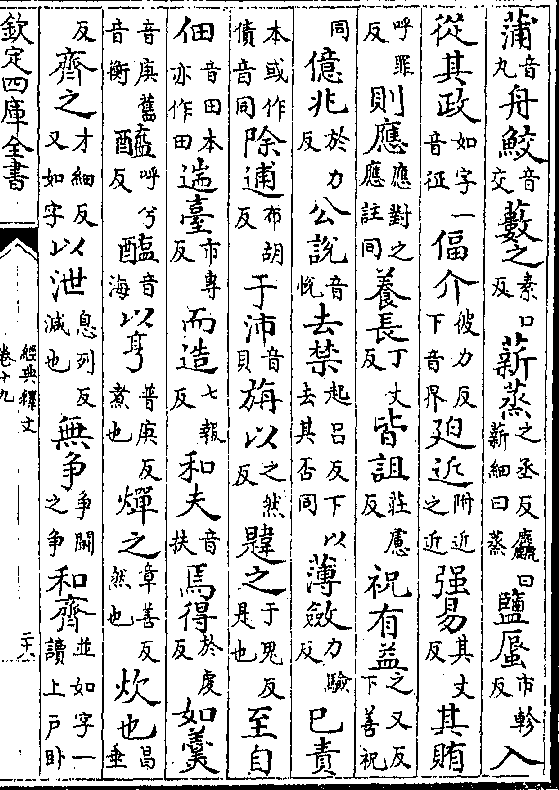 蒲音丸舟鮫音交藪之素口反薪蒸之丞反麤曰薪細曰蒸鹽蜃市軫反入
從其政如字一音征偪介彼力反下音界廹近附近之近强易其丈反其賄
呼罪反則應應對之應註同養長丁丈反皆詛莊慮反祝有益之又反下善祝
同億兆於力反公說音悅去禁起吕反下以去其否同薄斂力驗反巳責
本或作債音同除逋布胡反于沛音貝旃以之然反韙之于鬼反是也至自
佃音田本亦作田遄臺市專反而造七報反和夫音扶焉得於虔反如羹
音庚舊音衡醯呼兮反醢音海以亨普庚反煮也燀之章善反然也炊也昌垂
反齊之才細反又如字以泄息列反減也無争争鬭之争和齊並如字一讀上戶卧
欽定四庫全書
經典釋文
卷十九
二十六